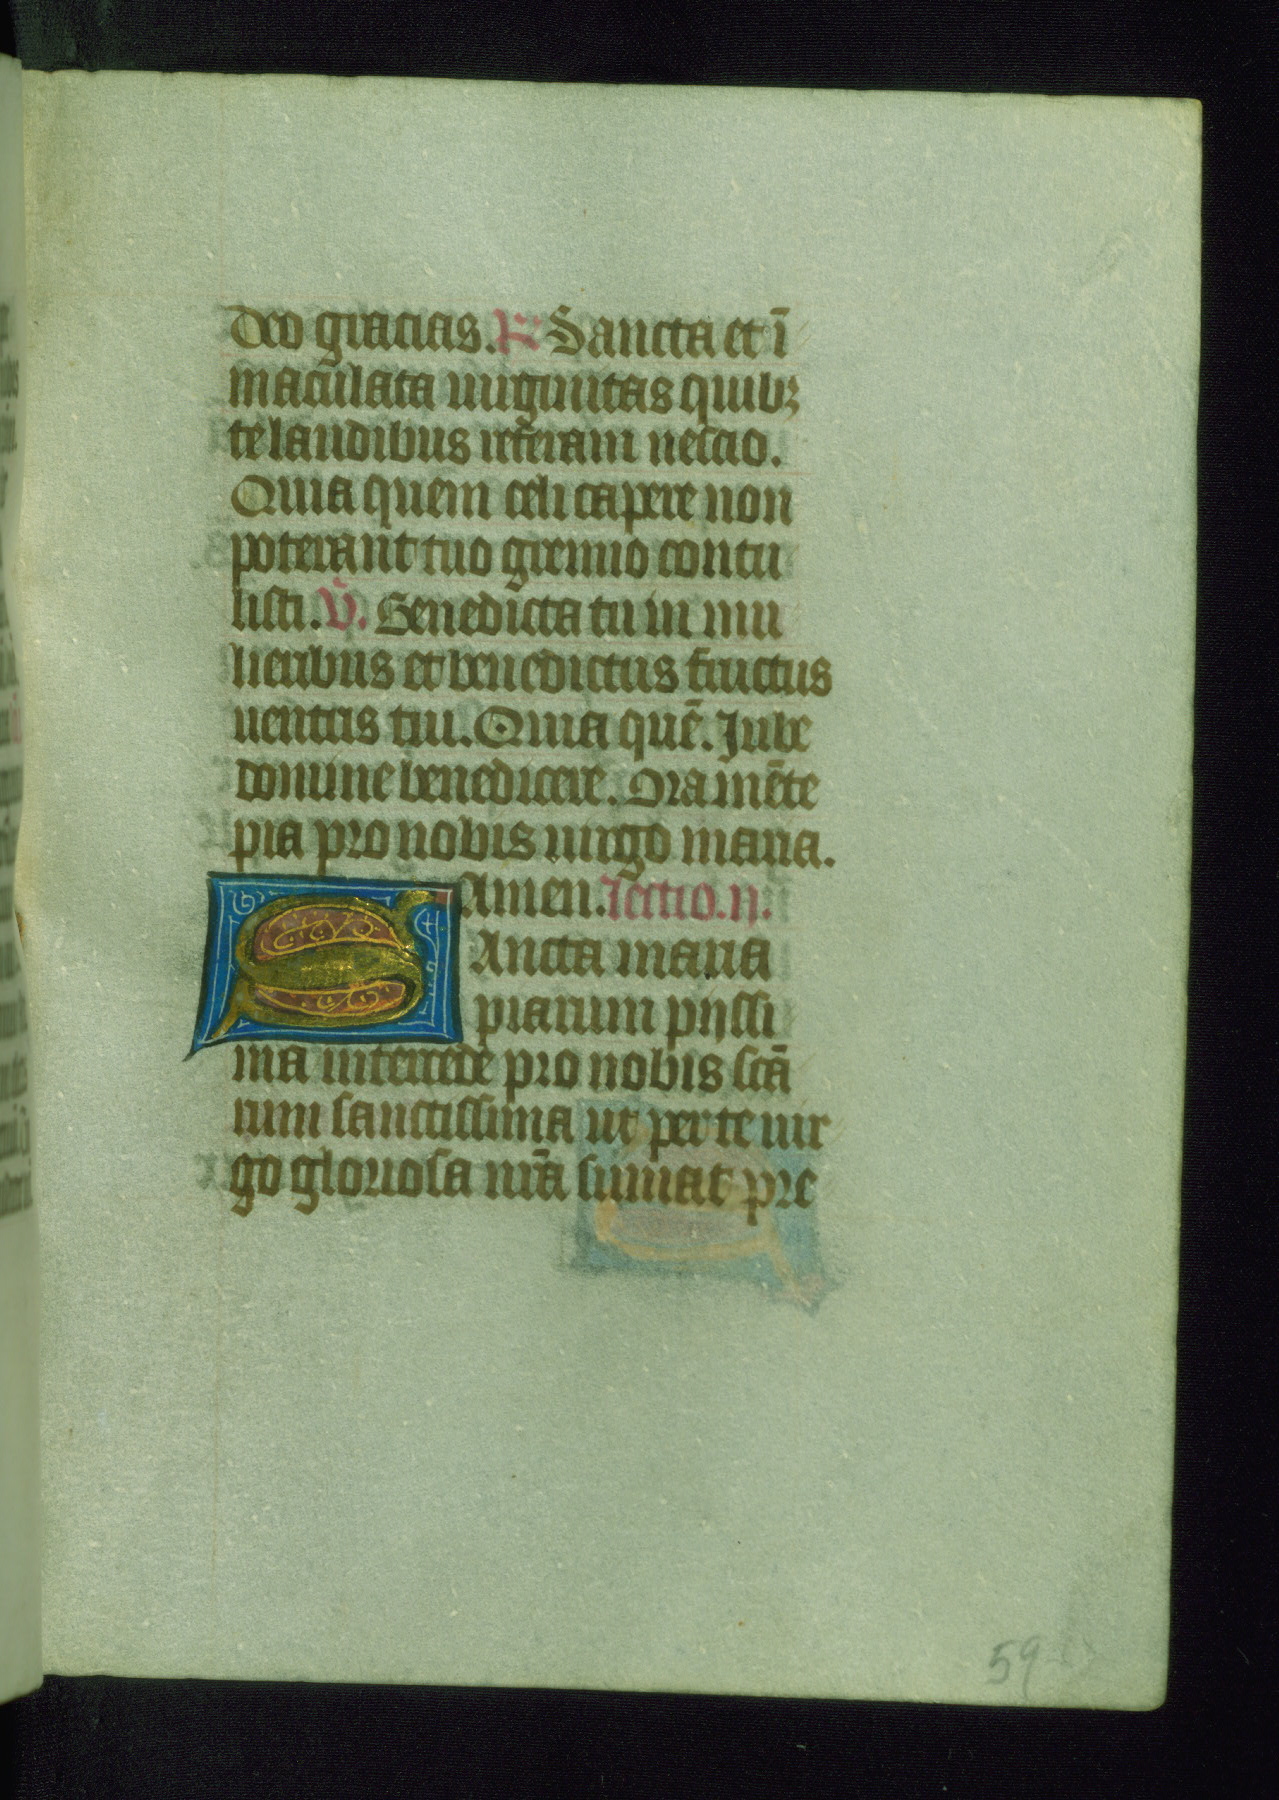 Deo gracias. R. Sancta et ī
maculata uirginitas quibꝫ
te laudibus referam nescio.
Quia quem celi capere non
poterant tuo gremio contu
listi. V̄. Benedicta tu in mu
lieribus et benedictus fructus
uentris tui. Quia quē. Jube
domine benedicere. Ora mēte
pia pro nobis uirgo maria.
Amen. lectio. ij.
SAncta maria
piarum pijssi
ma intercede pro nobis sctā
rum sanctissima ut per te uir
go gloriosa nr̄a sumat pre
59